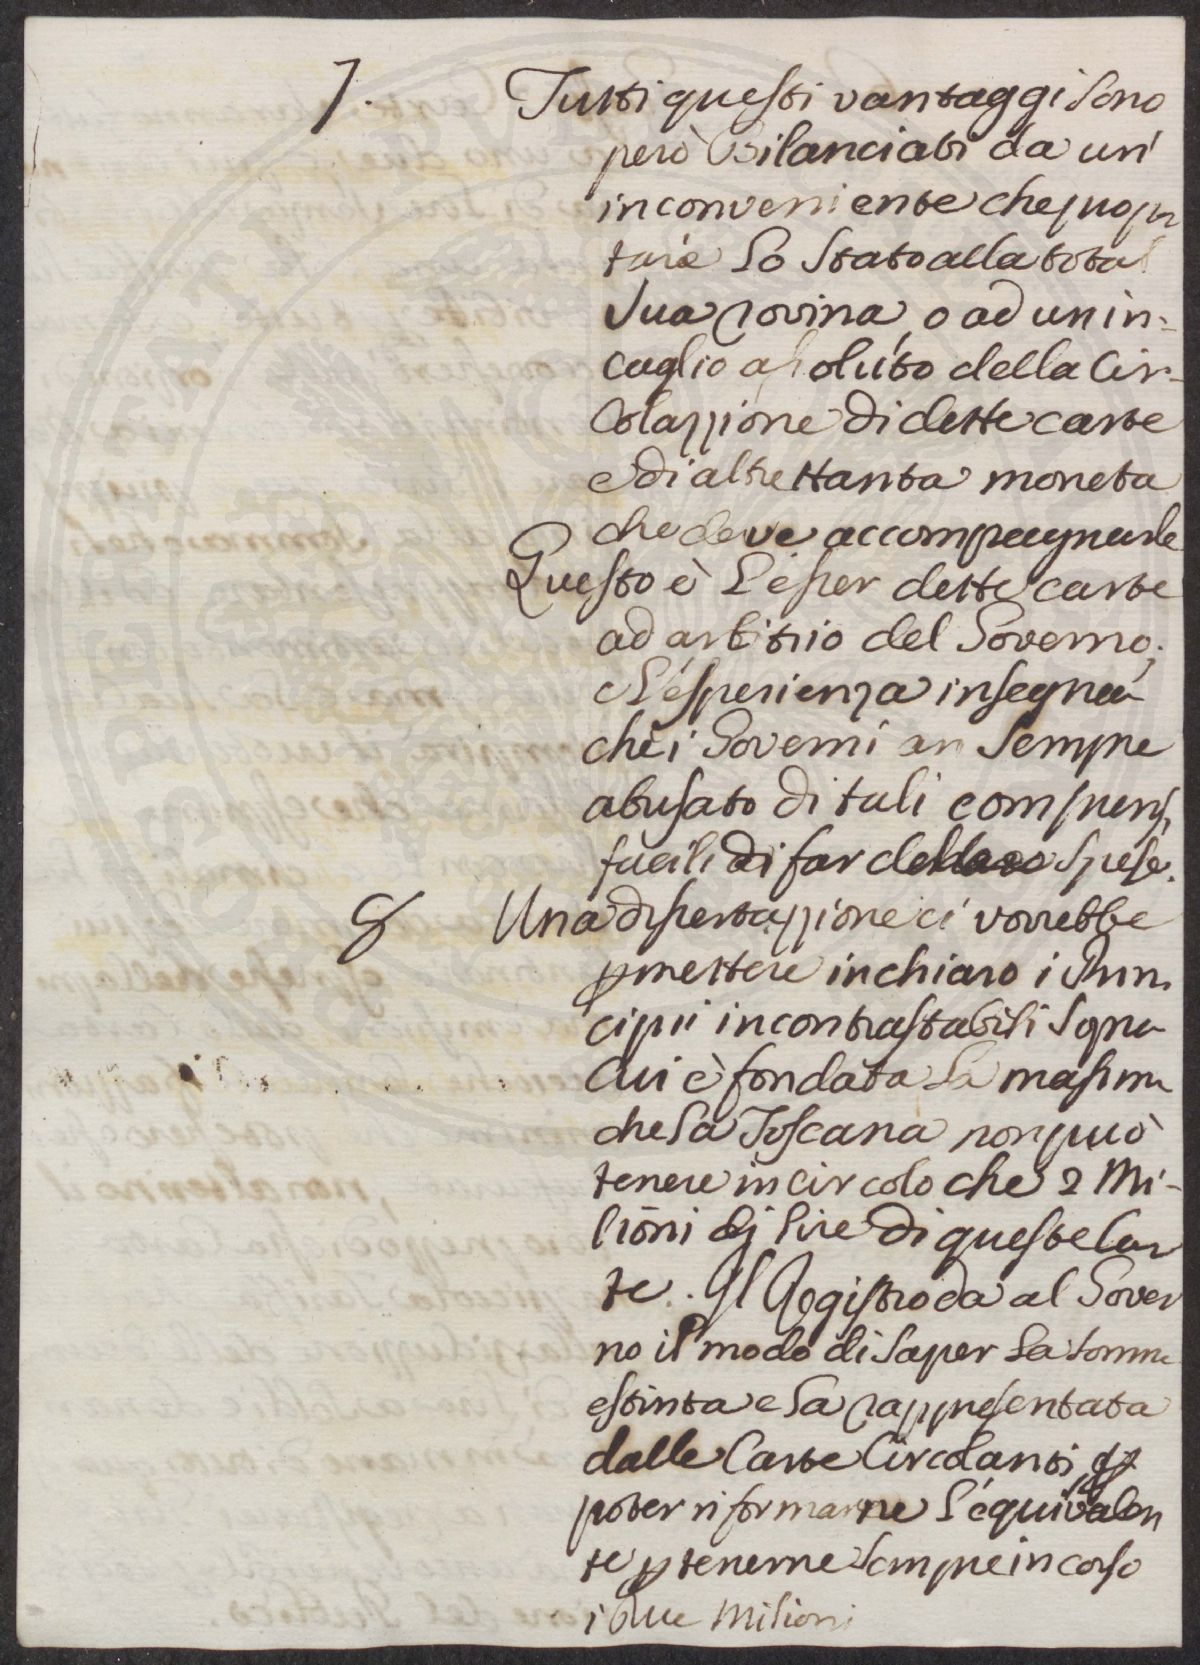 7. Tutti questi vantaggi sono
però bilanciati da un'
inconveniente che può por
tare lo Stato alla total
sua rovina, o ad un in-
caglio assoluto della Cir-
colazzione di dette carte
e di altrettanta moneta
che deve accompagnarle
Questo è l'esser dette carte
ad arbitrio del Governo;
e l'esperienza insegna
che i Governi an sempre
abusato di tali compensi
facili di far delle spese.
8 Una dissertazzione ci vorrebbe
p mettere in chiaro i Prin
cipii incontrastabili sopra
Cui è fondata la massima
che la Toscana non può
tenere in circolo che 2 Mi-
lioni di lire di queste Car
te. Il Registro da al Gover
no il modo di saper la somma
estinta e la rappresentata
dalle Carte Circolanti, p
poter riformarne l'equivalen
te p tenerne sempre in corso
i due Milioni